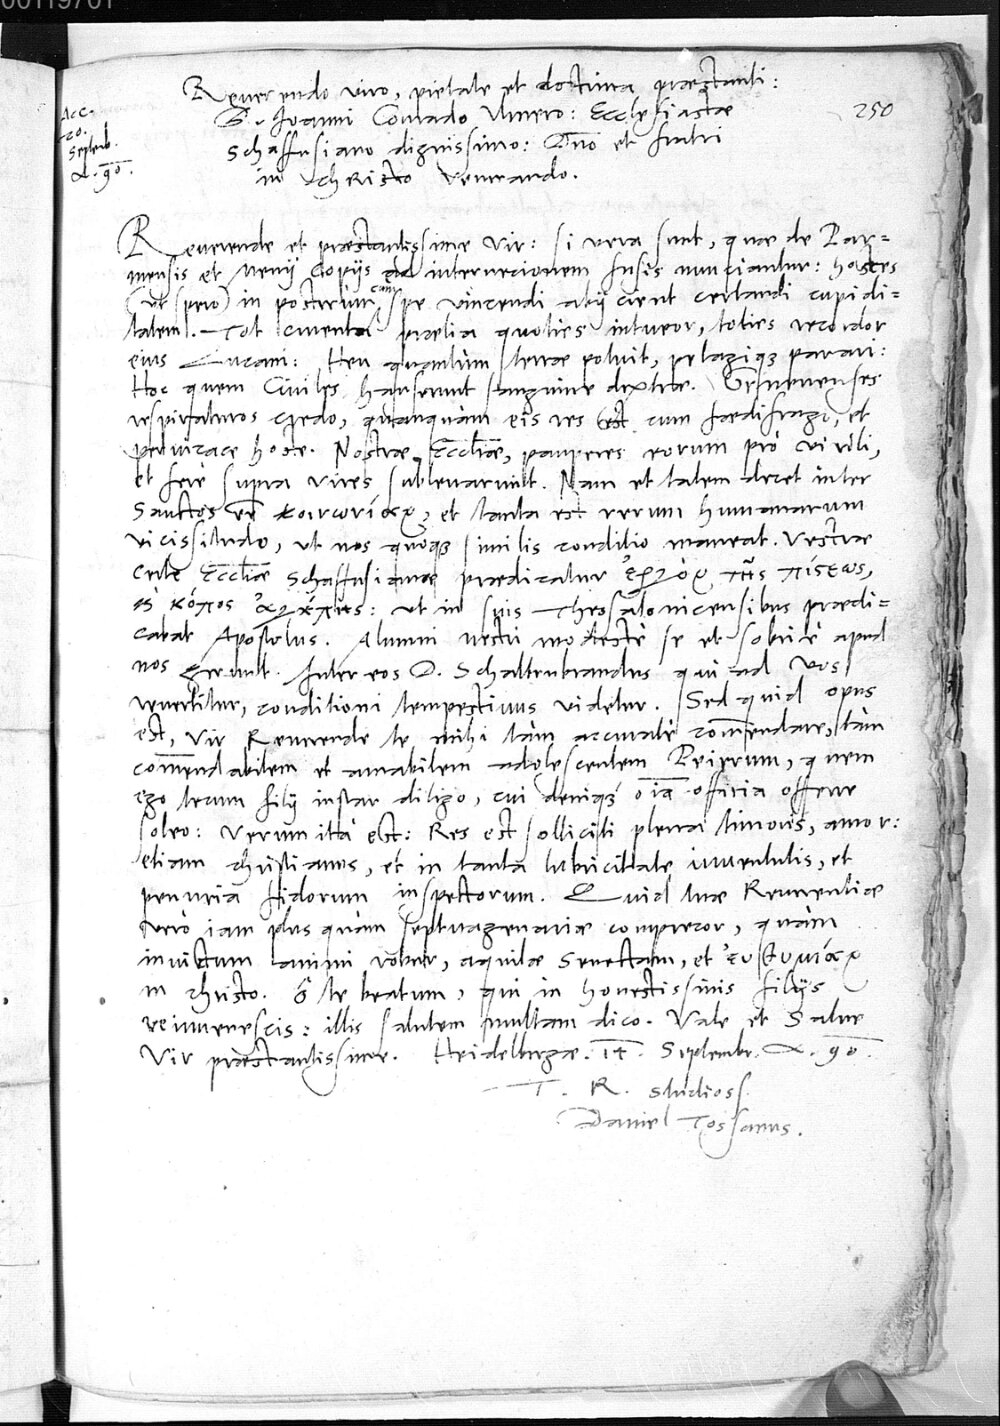 00119701
250
Acc.
20.
Septemb.
A. 90.
Reuerendo viro, pietate et doctrina præstanti:
D. Joanni Conrado Vlmero: Ecclesiastæ
Schaffusiano dignissimo: Dno et fratri
in Christo Venerando.
Reuerende et præstantissime Vir: si vera sunt, quæ de Par=
mensis et Menij copijs ad internecionem fusis nunciantur: hostes
(ut spero) in posterum cum spe vincendi abijcient certandi cupidi=
tatem. Tot cruenta prælia quoties intueor, toties recordor
eius Lucani: Heu quantum terræ potuit, pelagiq3 parari:
Hoc quem Civiles hauserunt sanguine dextræ. Geneuenses
respiraturos credo, quanquam eis res est cum fœdifrago, et
peruicace hoste. Nostræ Eccliæ, pauperes eorum pro virili,
et ferè supra vires subleuarunt. Nam et talem decet inter
Sanctos ee κοινωνίαν, et tanta est rerum humanarum
vicissitudo, ut nos quoq3 similis conditio maneat. Vestræ
certe Eccliæ Schaffusianæ prædicatur ἔργον τῆς πίστεως,
κὶ κόπος ἀγάπης: ut in suis Thessalonicensibus prædi=
cabat Apostolus. Alumni vestri modestè se et sobriè apud
nos gerunt. Inter eos D. Schaltenbrandus qui ad vos
reuertitur, conditioni tempestiuus videtur. Sed quid opus
est, Vir Reuerende te mihi tàm accuratè commendare, tàm
commendabilem et amabilem adolescentem Beierum, quem
ego tecum filij instar diligo, cui deniq3 oia officia offerre
soleo: Verum ita est: Res est solliciti plena timoris, amor:
etiam christianus, et in tanta lubricitate iuuentutis, et
penuria fidorum inspectorum. Quid tuæ Reuerentiæ
verò iam plus quàm septuagenariæ comprecor, quàm
inuictum animi robur, aquilæ Senectam, et εὐθυμίαν
in christo. ô te beatum, qui in honestissimis filijs
reiuuenescis: illis salutem multam dico. Vale et Salue
Vir præstantissime. Heidelbergæ. 14. Septembr. A. 90.
T. R. studioss.
Daniel Tossanus.